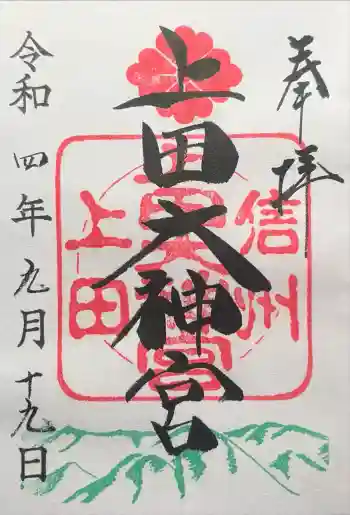 奉拝
信州
上田大神宮
上田
令和四年九月十九日